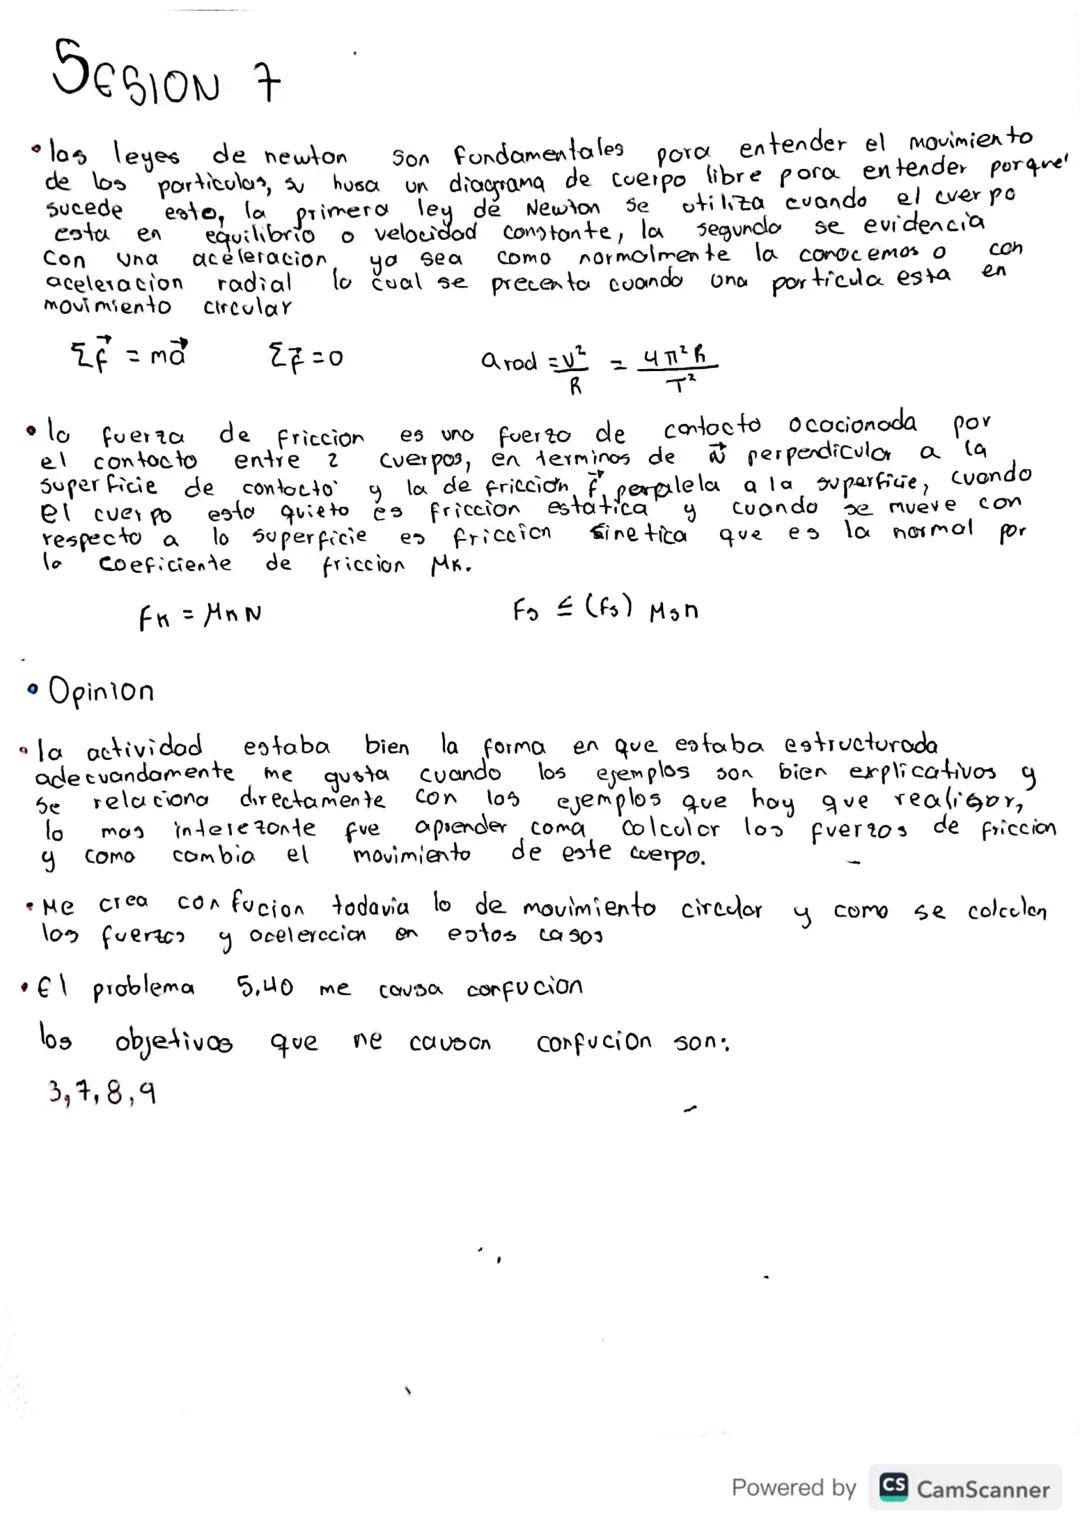 SESION 7
• las leyes de newton son fundamentales para entender el movimiento
de las particulas, su husa un diagrama de cuerpo libre para entender porque
sucede esto, la primera ley de Newton se utiliza cuando el cuerpo
esta en equilibrio o velocidad constante, la segunda se evidencia
con una aceleracion ya sea como normalmente la conocemos o con
aceleracion radial lo cual se precenta cuando una particula esta en
movimiento circular
Σf⃗ = ma⃗ Σf⃗ = 0 a rad = v²/R = 4π²R/T²
• la fuerza de friccion es una fuerza de contacto ococionada por
el contacto entre 2 cuerpos, en terminos de n⃗ perpendicular a la
superficie de contacto y la de friccion f⃗ perplela a la superficie, cuando
el cuerpo esta quieto es friccion estática y cuando se mueve con
respecto a la superficie es friccion sinetica que es la normal por
la coeficiente de friccion Mk.
Fk = Mk N Fs ≤ (fs) Msn
• Opinion
• la actividad estaba bien la forma en que estaba estructurada
adecuandamente me gusta cuando los ejemplos son bien explicativos y
se relaciona directamente con los ejemplos que hay que realisar,
lo mas interezante fue aprender como calcular las fuerzas de friccion
y como cambia el movimiento de este cuerpo.
• Me crea confucion todavia lo de movimiento circular y como se calculan
las fuerzas y aceleraccion en estos casos
• El problema 5,40 me causa confucion
los objetivos que me causan confucion son:
3,7,8,9
Powered by CS CamScanner